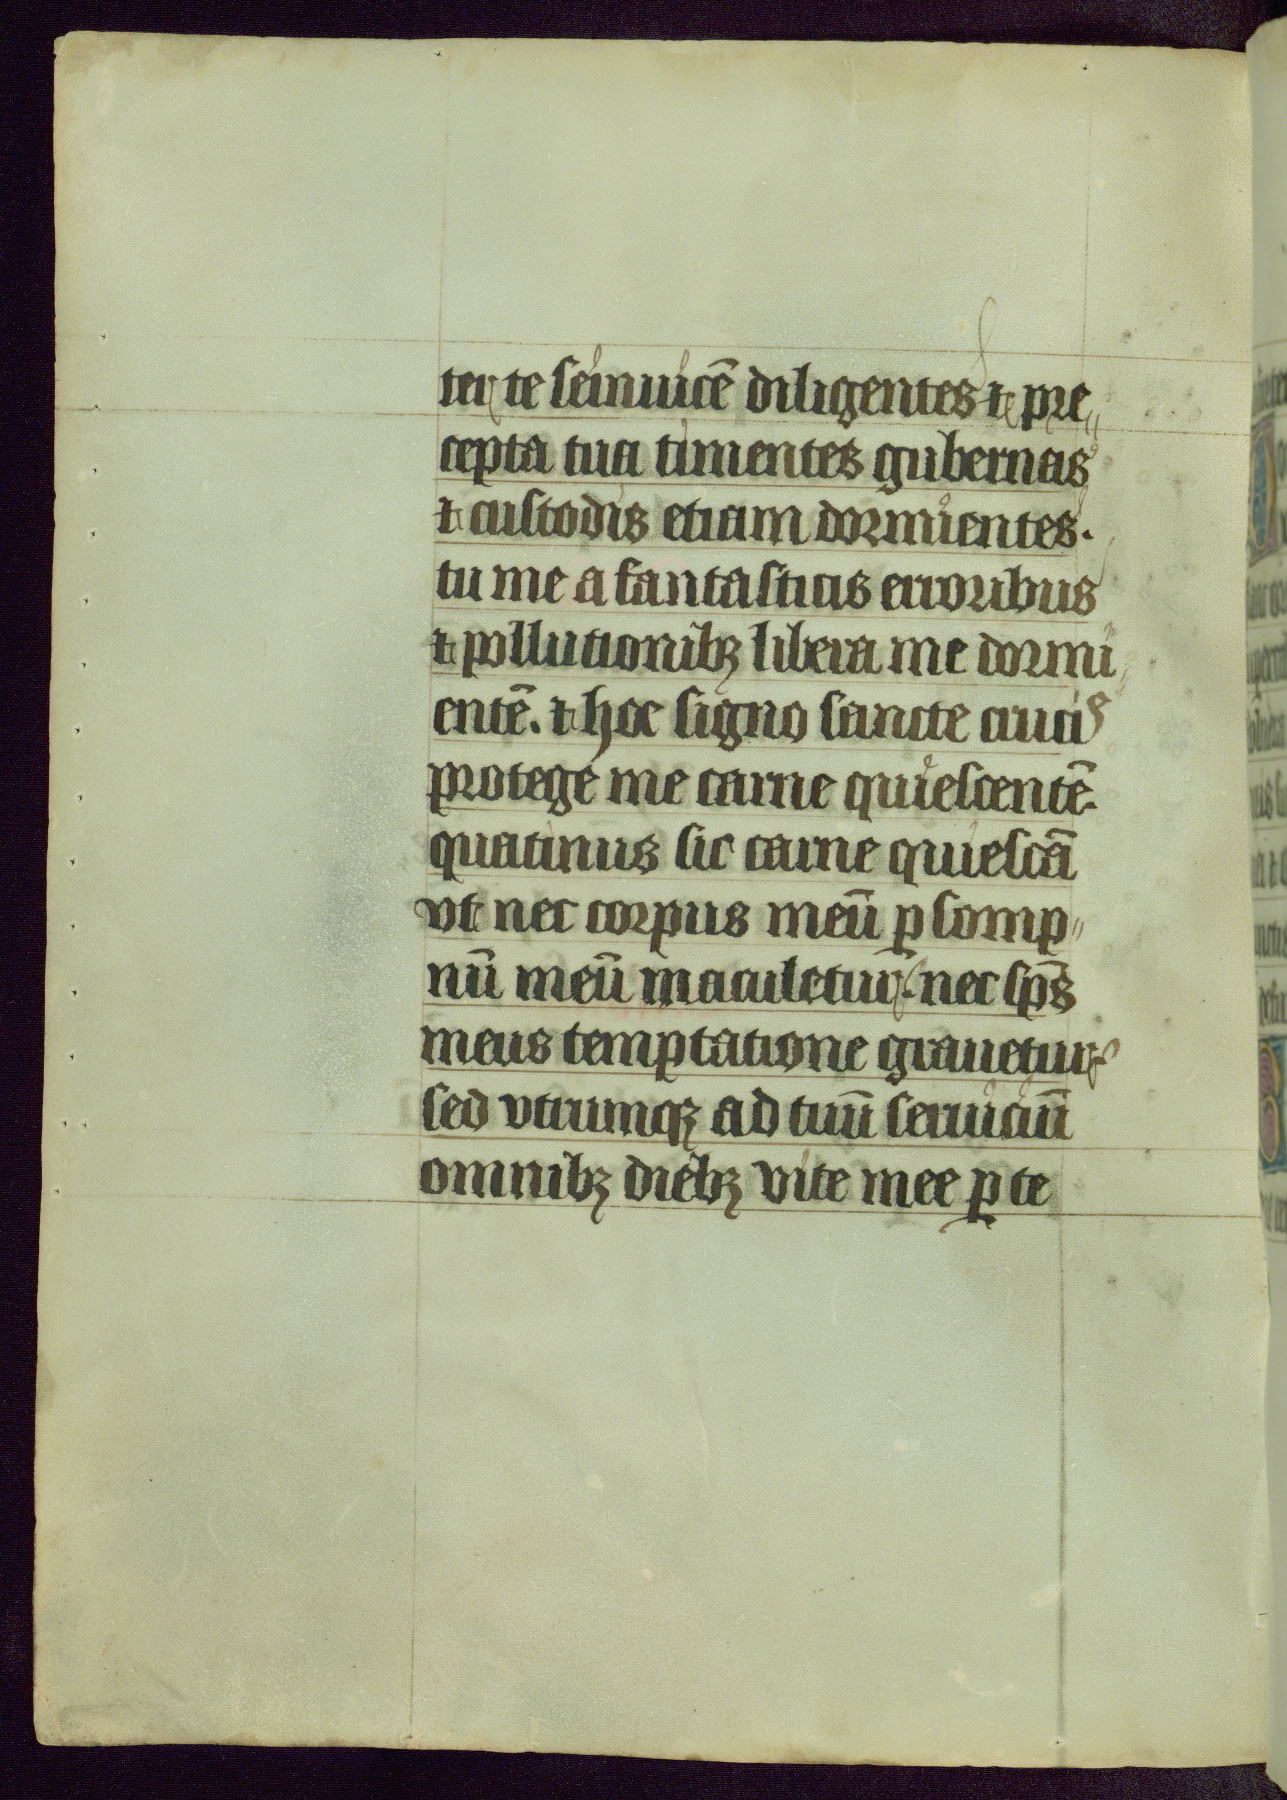 ter te seinuicē diligentes ⁊ pre〃
cepta tua timentes gubernas
⁊ custodis etiam dormientes.
tu me a fantasticis erroribus
⁊ pollutionibꝫ libera me dormi〃
entē. ⁊ hoc signo sancte crucis
protege me carne quiescentē.
quatinus sic carne quiescā
vt nec corpus meū ꝑ somp〃
nū meū maculetur. nec sp̄s
meus temptatione grauetur
sed vtrumqꝫ ad tuū seruiciū
omnibꝫ diebꝫ vite mee ꝑ te